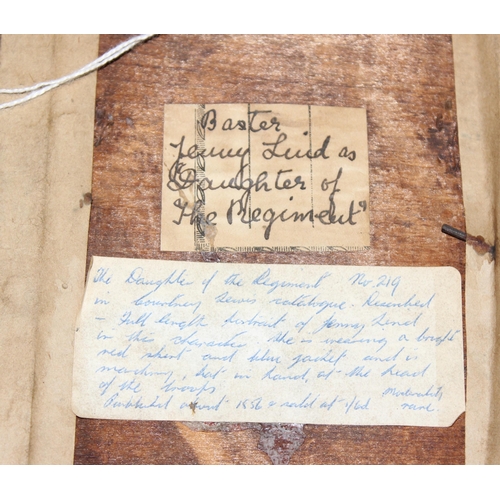 Baxter
Jenny Lind as
"Daughter of
The Regiment"
The Daughter of the Regiment" No. 219
in Courtney Lewis catalogue. Described
- Full length portrait of Jenny Lind
in this character. She - wearing a bright
red skirt and blue jacket and is
marching, hat in hand, at the head
of the troops
Published about 1856 & sold at 1/6d. Moderately
rare.